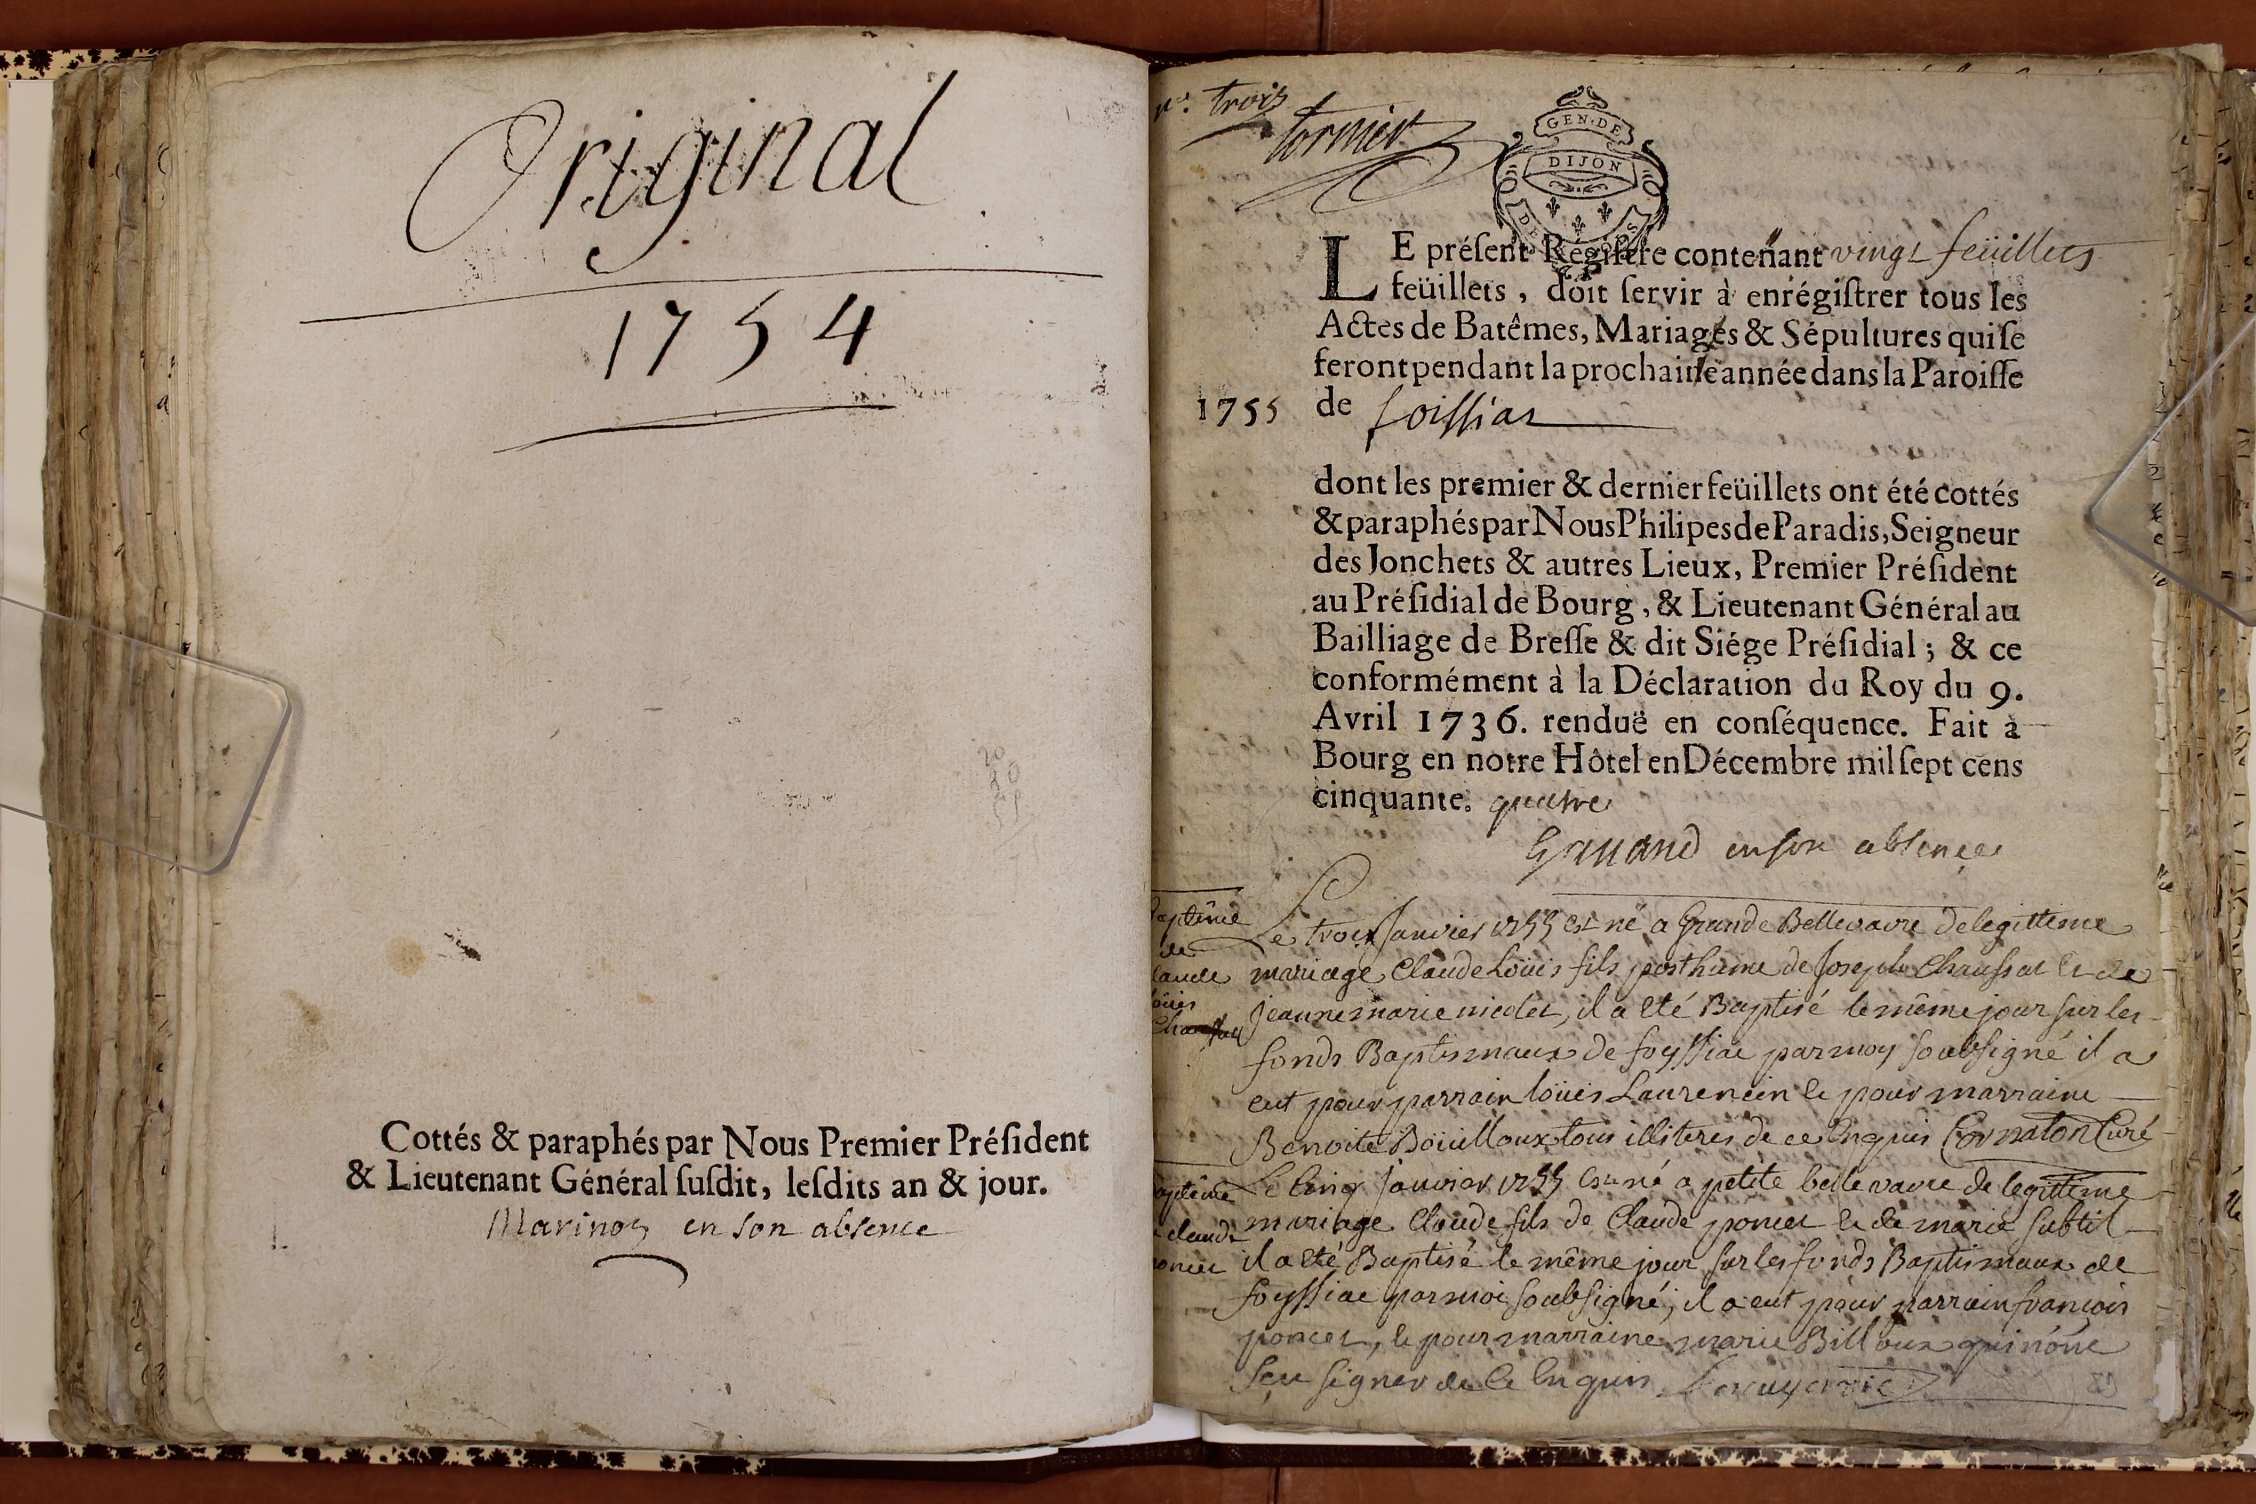 Original
1754
Cottés & paraphés par Nous Premier Préſident
& Lieutenant Général ſuſdit, leſdits an & jour.
Marinon en son absence
nº. trois
GEN·DE
DIJON
LE préſent Regiſtre contenant vingt feüillets
feüillets, doit ſervir à enrégiſtrer tous les
Actes de Batêmes, Mariages & Sépultures qui ſe
feront pendant la prochaine année dans la Paroiſſe
1755 de foissiat
dont les premier & dernier feüillets ont été cottés
& paraphés par Nous Philipes de Paradis, Seigneur
des Jonchets & autres Lieux, Premier Préſident
au Préſidial de Bourg, & Lieutenant Général au
Bailliage de Breſſe & dit Siége Préſidial; & ce
conformément à la Déclaration du Roy du 9.
Avril 1736. renduë en conſéquence. Fait à
Bourg en notre Hôtel en Décembre mil ſept cens
cinquante. quatre
en son absence
Baptême
de
Claude
Loüis
Le trois Janvier 1755 est né a Grande Bellevavre de legitteme
mariage Claude Loüis fils posthume de Joseph Chaussat et de
jeanne marie nicolet, il a eté Baptisé le même jour sur les
fonds Baptismaux de foyssiac par moy soubsigné il a
eut pour parrain loüis Laurencin et pour marraine
Benoite Boüilloux tous illiterés de ce Enquis Cornaton Curé
Baptême
de claude
poncet
Le Cinq Janvier 1755 est né a petite bellevavre de legitteme
mariage Claude fils de Claude poncet et de marie subtil
il a eté Baptisé le même jour sur les fonds Baptismaux de
foyssiac par moi soubsigné, il a eut pour parrain françois
poncet, et pour marraine marie Billoux qui n'ont
sçu signer de ce Enquis